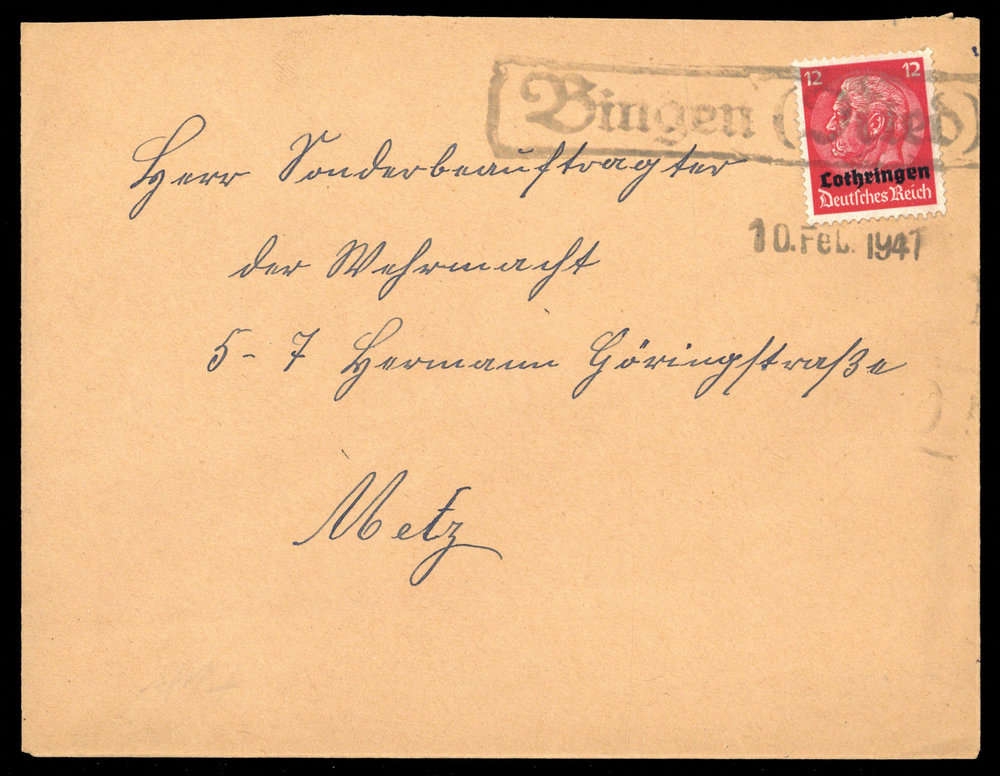 Bingen (Nied)
12 12
Lothringen
Deutsches Reich
10. Feb. 1941
Herr Sonderbeauftragter
der Wehrmacht
5 - 7 Hermann Göringstraße
Metz